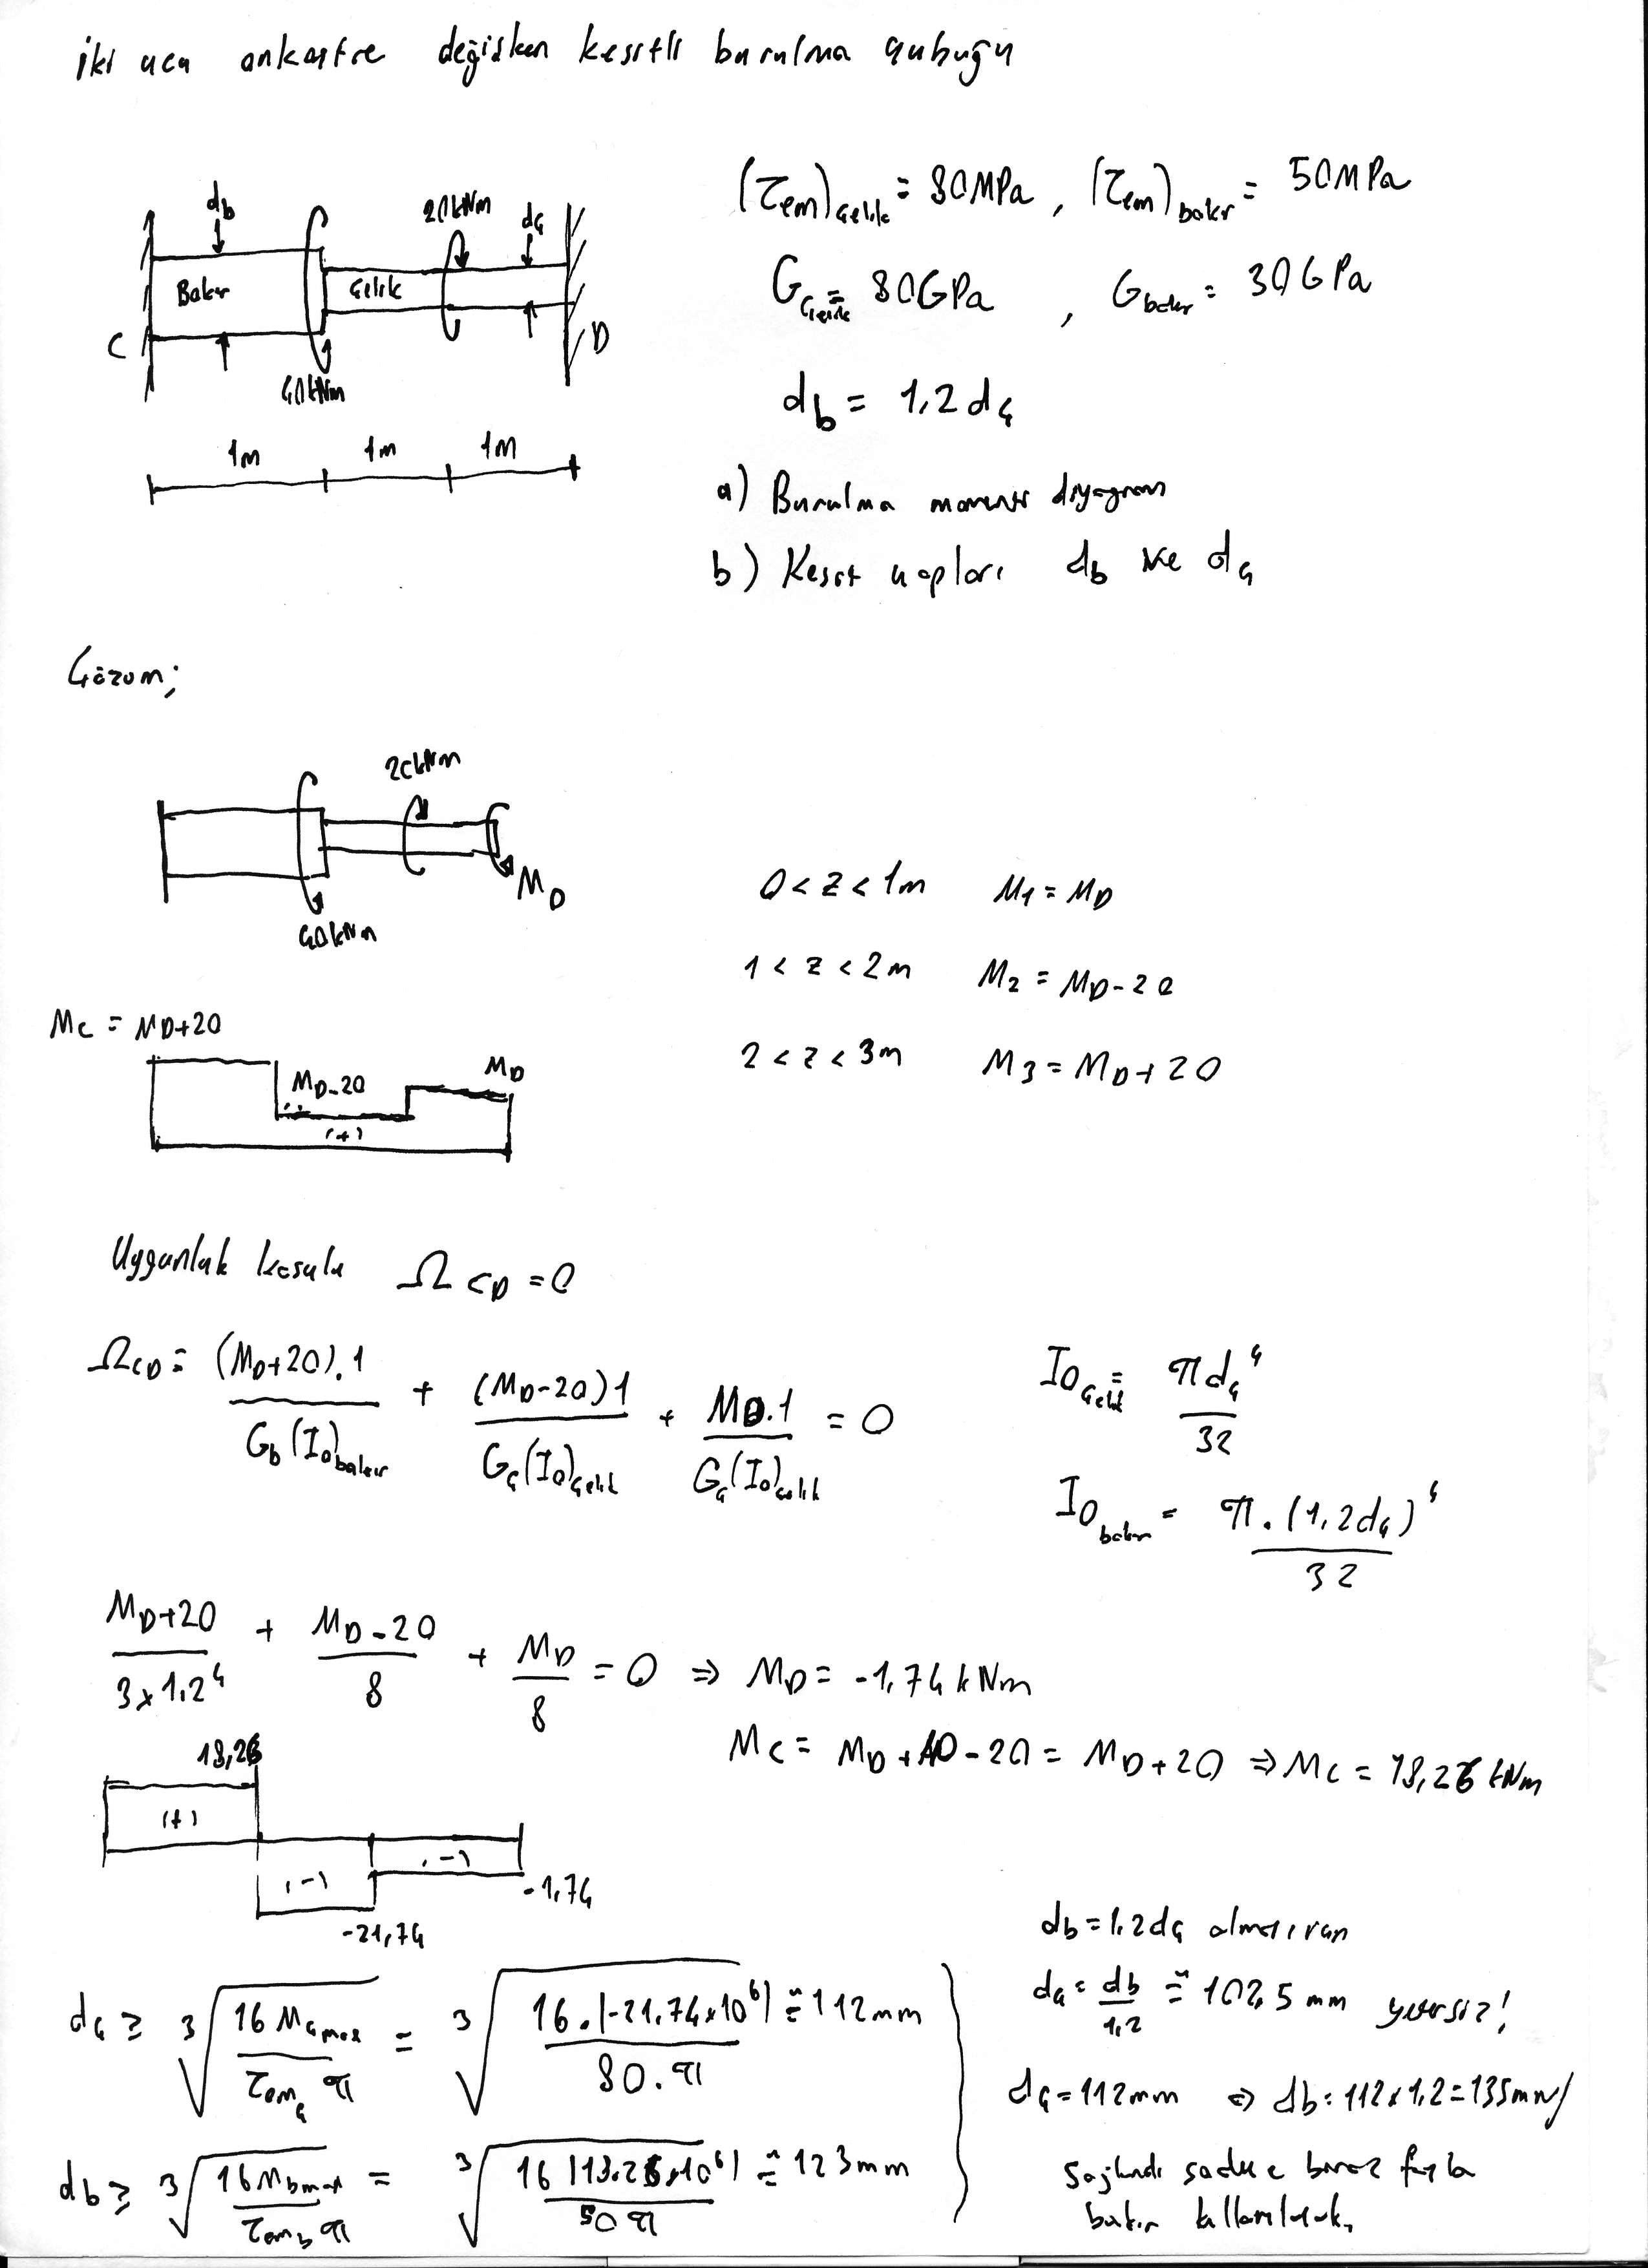 iki ucu ankastre değişken kesitli burulma çubuğu
(τem)çelik = 80MPa, (τem)bakır = 50MPa
db
20kNm
dç
Bakır
Çelik
C
D
40kNm
Gçelik = 80GPa, Gbakır = 30GPa
db = 1,2dç
1m 1m 1m
a) Burulma momenti diyagramı
b) Kesit çapları db ve dç
Çözüm;
20kNm
MD
40kNm
0 < z < 1m M1 = MD
1 < z < 2m M2 = MD-20
2 < z < 3m M3 = MD+20
MC = MD+20
MD-20
MD
(+)
Uygunluk koşulu ΩCD = 0
ΩCD = (MD+20).1 / Gb(I0)bakır + (MD-20)1 / Gç(I0)çelik + MD.1 / Gç(I0)çelik = 0
I0çelik = πdç⁴ / 32
I0bakır = π.(1,2dç)⁴ / 32
MD+20 / 3x1,2⁴ + MD-20 / 8 + MD / 8 = 0 ⇒ MD = -1,74 kNm
MC = MD+40-20 = MD+20 ⇒ MC = 18,26 kNm
18,26
(+)
(-)
(-)
-1,74
-21,74
dç ≥ ³√(16 Mçmax / τemç π) = ³√(16.(-21,74x10⁶) / 80.π) ≅ 112mm
db ≥ ³√(16Mbmax / τemb π) = ³√(16(18.26x10⁶) / 50π) ≅ 123mm
db = 1.2dç
dç = db / 1,2 ≅ 102,5 mm yetersiz!
dç = 112mm ⇒ db: 112x1,2 = 135mm/
Sağlandı sadece biraz fazla
bakır kullanılacak,